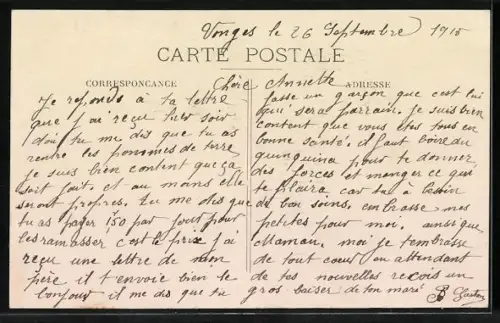 Vonges le 26 Septembre 1915
CARTE POSTALE
CORRESPONCANCE
ADRESSE
Chère Annette
Je reponds à ta lettre
que j'ai reçu hier soir
dou tu me dis que tu as
rentré les pommes de terre
je suis bien content que ça
soit fait, et au moins elle
seront propres. Tu me dis que
tu as payer 1,50 par jour pour
les ramasser c'est le prix j'ai
reçu une lettre de mon
père il t'envoie bien le
bonjour il me dis que tu
fasse un garçon que c'est lui
qui sera parrain. Je suis bien
content que vous êtes tous en
bonne santé. il faut boire du
quinquina pour te donner
des forces et manger ce qui
te plaira car tu à besoin
de bon soins. embrasse mes
petites pour moi. ainsi que
Maman. moi je t'embrasse
de tout coeur en attendant
de tes nouvelles reçois un
gros baiser de ton mari
B Gaston